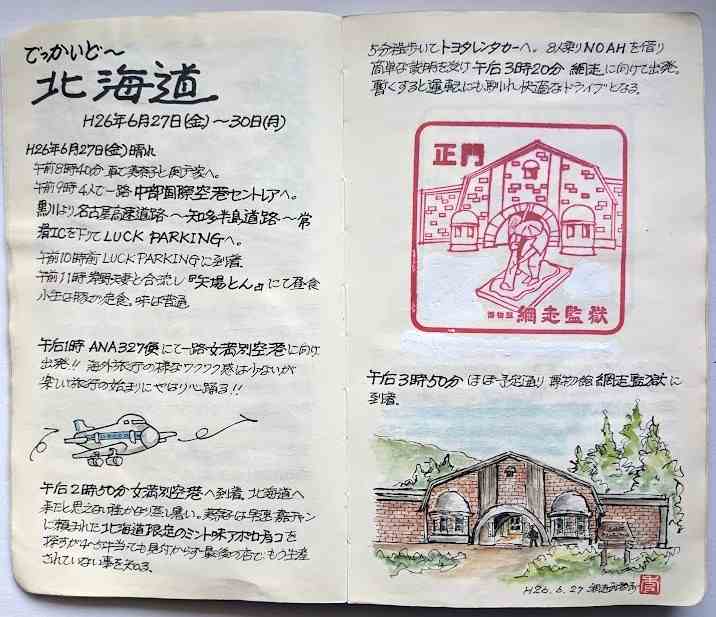 でっかいど～
北海道
H26年6月27日(金)～30日(月)
H26年6月27日(金)晴れ
午前8時40分 車で実家へ。
午前9時 4人で一路 中部国際空港セントレアへ。
黒川より名古屋高速道路～知多半島道路～常
滑ICを下りてLUCK PARKINGへ。
午前10時前 LUCK PARKINGに到着
午前11時 夫妻と合流し『矢場とん』にて昼食
小生は豚カツ定食。味は普通
午后1時 ANA327便にて一路女満別空港に向け
出発!! 海外旅行の様なワクワク感は少ないが
楽しい旅行の始まりにやはり心踊る!!
午后2時50分女満別空港へ到着。北海道へ
来たと思えない位かなり蒸し暑い。早速
に頼まれた北海道限定のミント味アポロチョコを
探すが4～5軒当っても見付からず最後の店でもう生産
されていない事を知る。
5分程歩いてトヨタレンタカーへ。8人乗りNOAHを借り
簡単な説明を受け午后3時20分 網走に向けて出発。
暫くすると運転にも馴れ快適なドライブとなる。
正門
博物館 網走監獄
午后3時50分 ほぼ予定通り 博物館 網走監獄に
到着。
H26.6.27 網走監獄